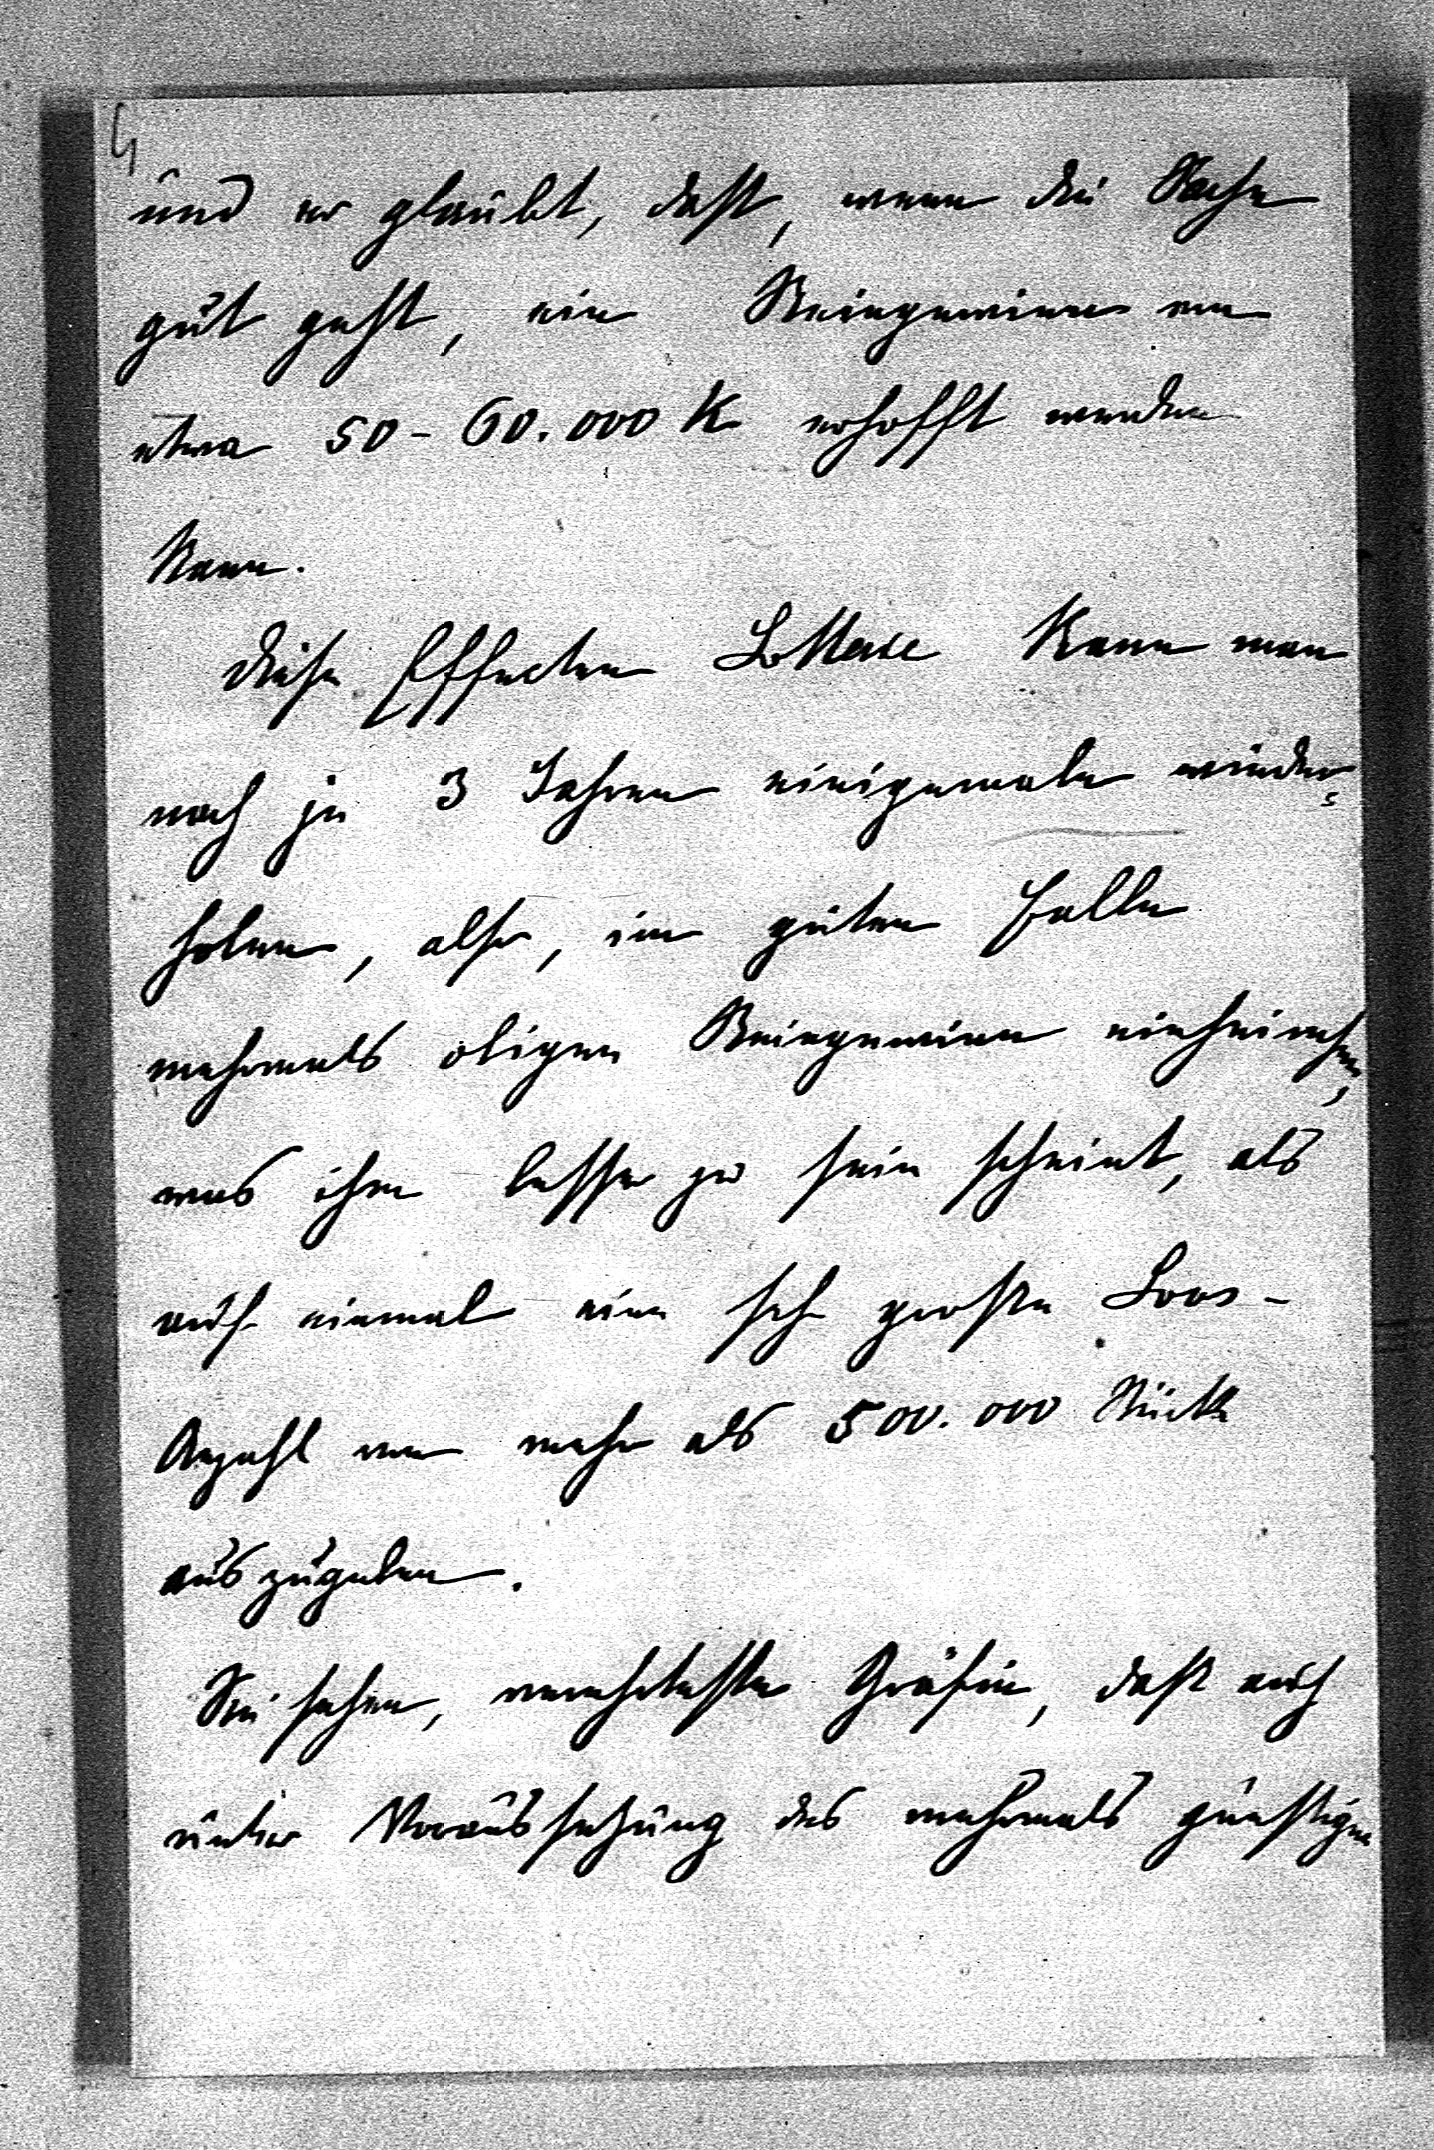 4
und er glaubt, daß, wenn die Sache
gut geht, ein Reingewinn von
etwa 50-60.000 K erhofft werden
kann.
Diese Effecten Lotterie kann man
nach je 3 Jahren einigemale wieder=
holen, also, im guten Falle
mehrmals obigen Reingewinn einheimsen,
was ihm besser zu sein scheint, als
auf einmal eine sehr große Loos-
Anzahl von mehr als 500.000 Stück
auszugeben.
Sie sehen, verehrteste Gräfin, daß auch
unter Voraussetzung des mehrmals günstigen